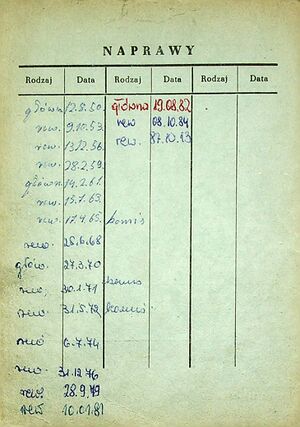 NAPRAWY
Rodzaj Data Rodzaj Data Rodzaj Data
główna 12.5.50. główna 19.08.82
rew. 9.10.53. rew 08.10.84
rew. 13.12.56. rew. 87.10.13
rew. 28.2.59.
główna 14.2.61.
rew. 15.7.63.
rew. 17.4.65. komis
rew. 25.6.68
głów. 27.3.70
rew. 30.1.71 komis
rew. 31.5.72 komis
rew 6.7.74
rew. 31.12.76
rew. 28.9.79
rew 10.01.81